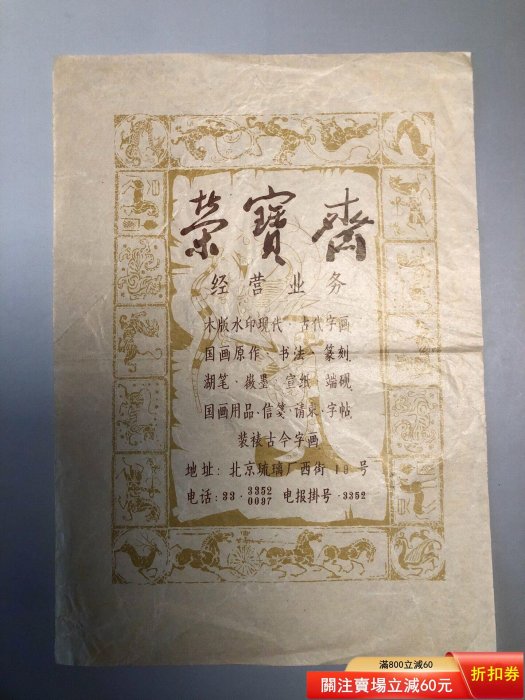 荣寳齋
经营业务
木版水印现代·古代字画
国画原作·书法·篆刻
湖笔·徽墨·宣纸·端砚
国画用品·信笺·请柬·字帖
装裱古今字画
地址：北京琉璃厂西街19号
电话：33·3352
0097
电报掛号·3352
滿800立減60
關注賣場立減60元
折扣券